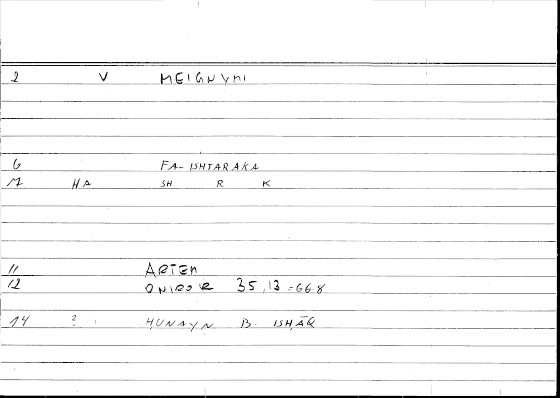 2 V MEIGNYMI
6 FA-ISHTARAKA
M HA SH R K
11 ARTEM
12 ONIROK 35,13=66.8
14 ? HUNAYN B. ISHĀQ